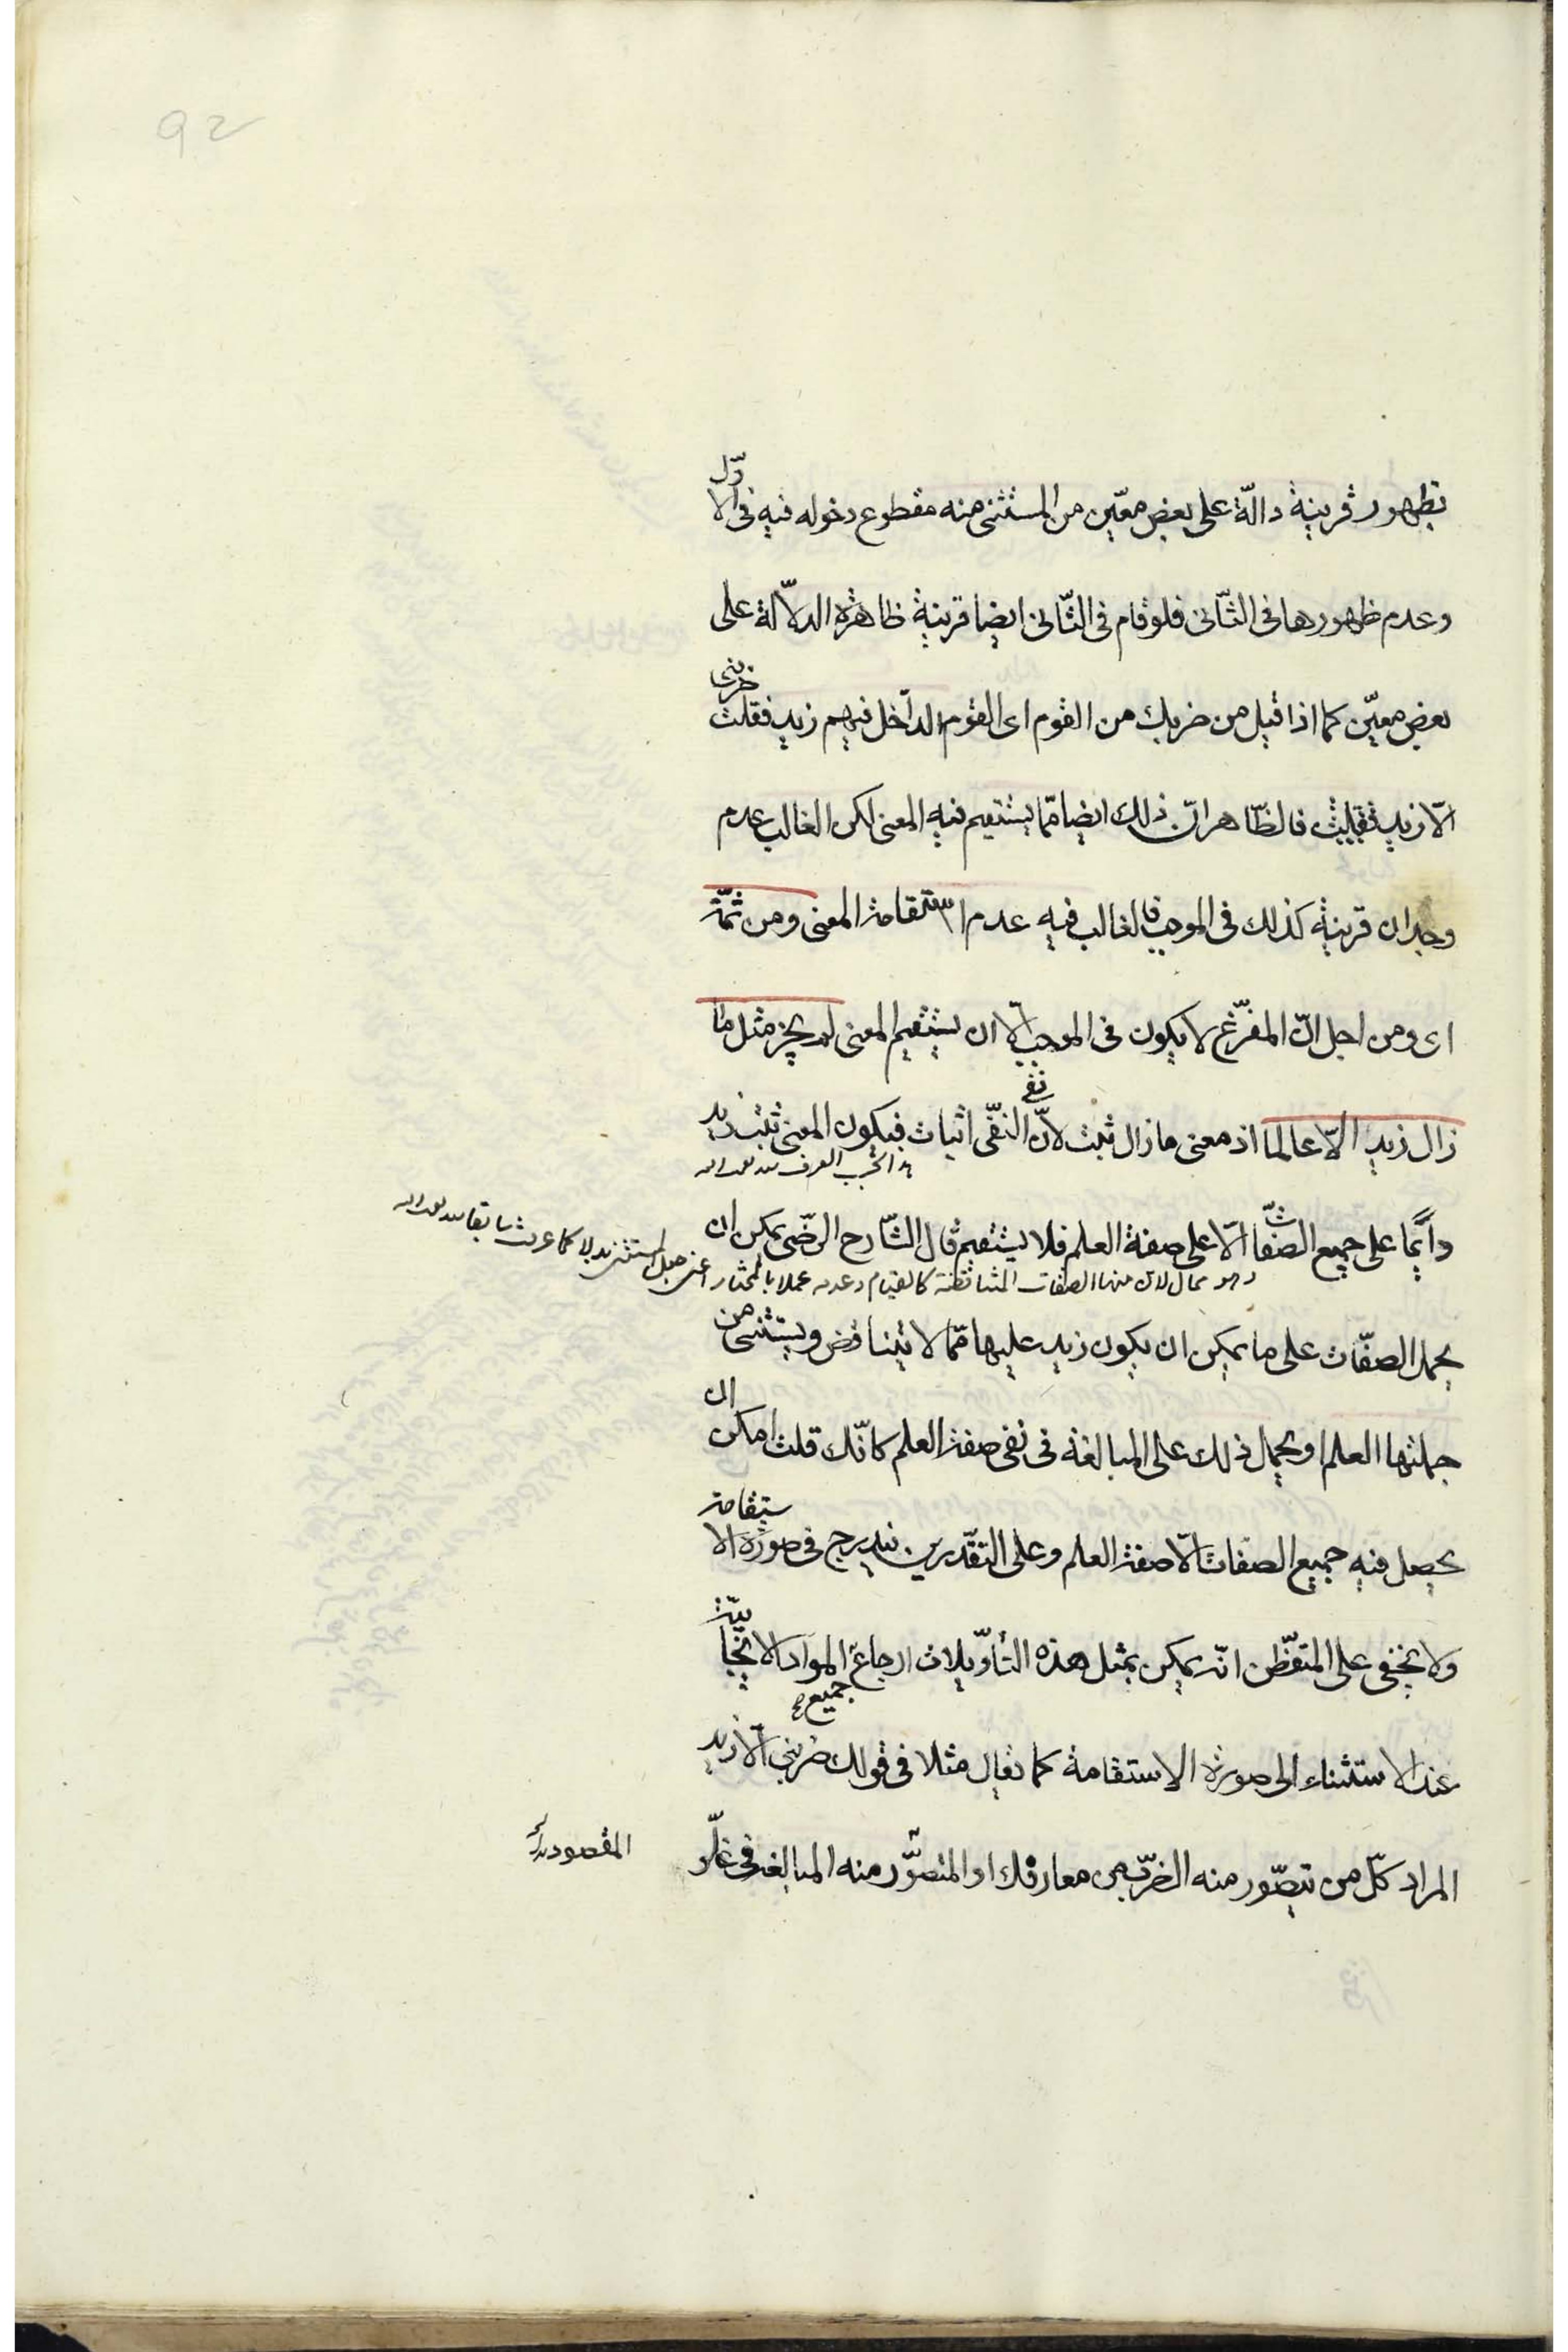 92
بظهور قرينة دالّة على بعض معيّن من المستثنى منه مقطوع دخوله فيه فى الاوّل
وعدم ظهورها فى الثّانى فلو قام فى الثّانى ايضا قرينة ظاهرة الدلّالة على
بعض معيّن كما اذا قيل من ضربك من القوم اى القوم الدّاخل فيهم زيد فقلت ضربنى
الّا زيد فالظّاهر انّ ذلك ايضا ممّا يستقيم فيه المعنى لكن الغالب عدم
وجدان قرينة كذلك فى الموجب فالغالب فيه عدم استقامة المعنى ومن ثمّة
اى ومن اجل انّ المفرّغ لا يكون فى الموجب الّا ان يستقيم المعنى لم يجز مثل ما
زال زيد الّا عالما اذ معنى ما زال ثبت لانّ نفى النفّى اثبات فيكون المعنى ثبت زيد
دائما على جميع الصّفات الّا على صفة العلم فلا يستقيم قال الشّارح الرّضى يمكن ان
وهو محال لان منها الصفات المتناقضة كالقيام وعدمه عملا بالمختار اعنى جعل المستثنى بدلا كما عرفت سابقا
يحمل الصفّات على ما يمكن ان يكون زيد عليها ممّا لا يتناقض ويستثنى من
جملتها العلم او يحمل ذلك على المبالغة فى نفى صفة العلم كانّك قلت امكن ان
يحصل فيه جميع الصفات الّا صفة العلم وعلى التقّديرين يندرج فى صورة الاستقامة
ولا يخفى على المتفطّن انّه يمكن بمثل هذه التّأويلات ارجاع جميع المواد الايجابيّة
عند الاستثناء الى صورة الاستقامة كما يقال مثلا فى قولك ضربنى الّا زيد
المراد كلّ من يتصّور منه الضّرب من معارفك او المقصود منه المبالغة فى غلّو
المقصود